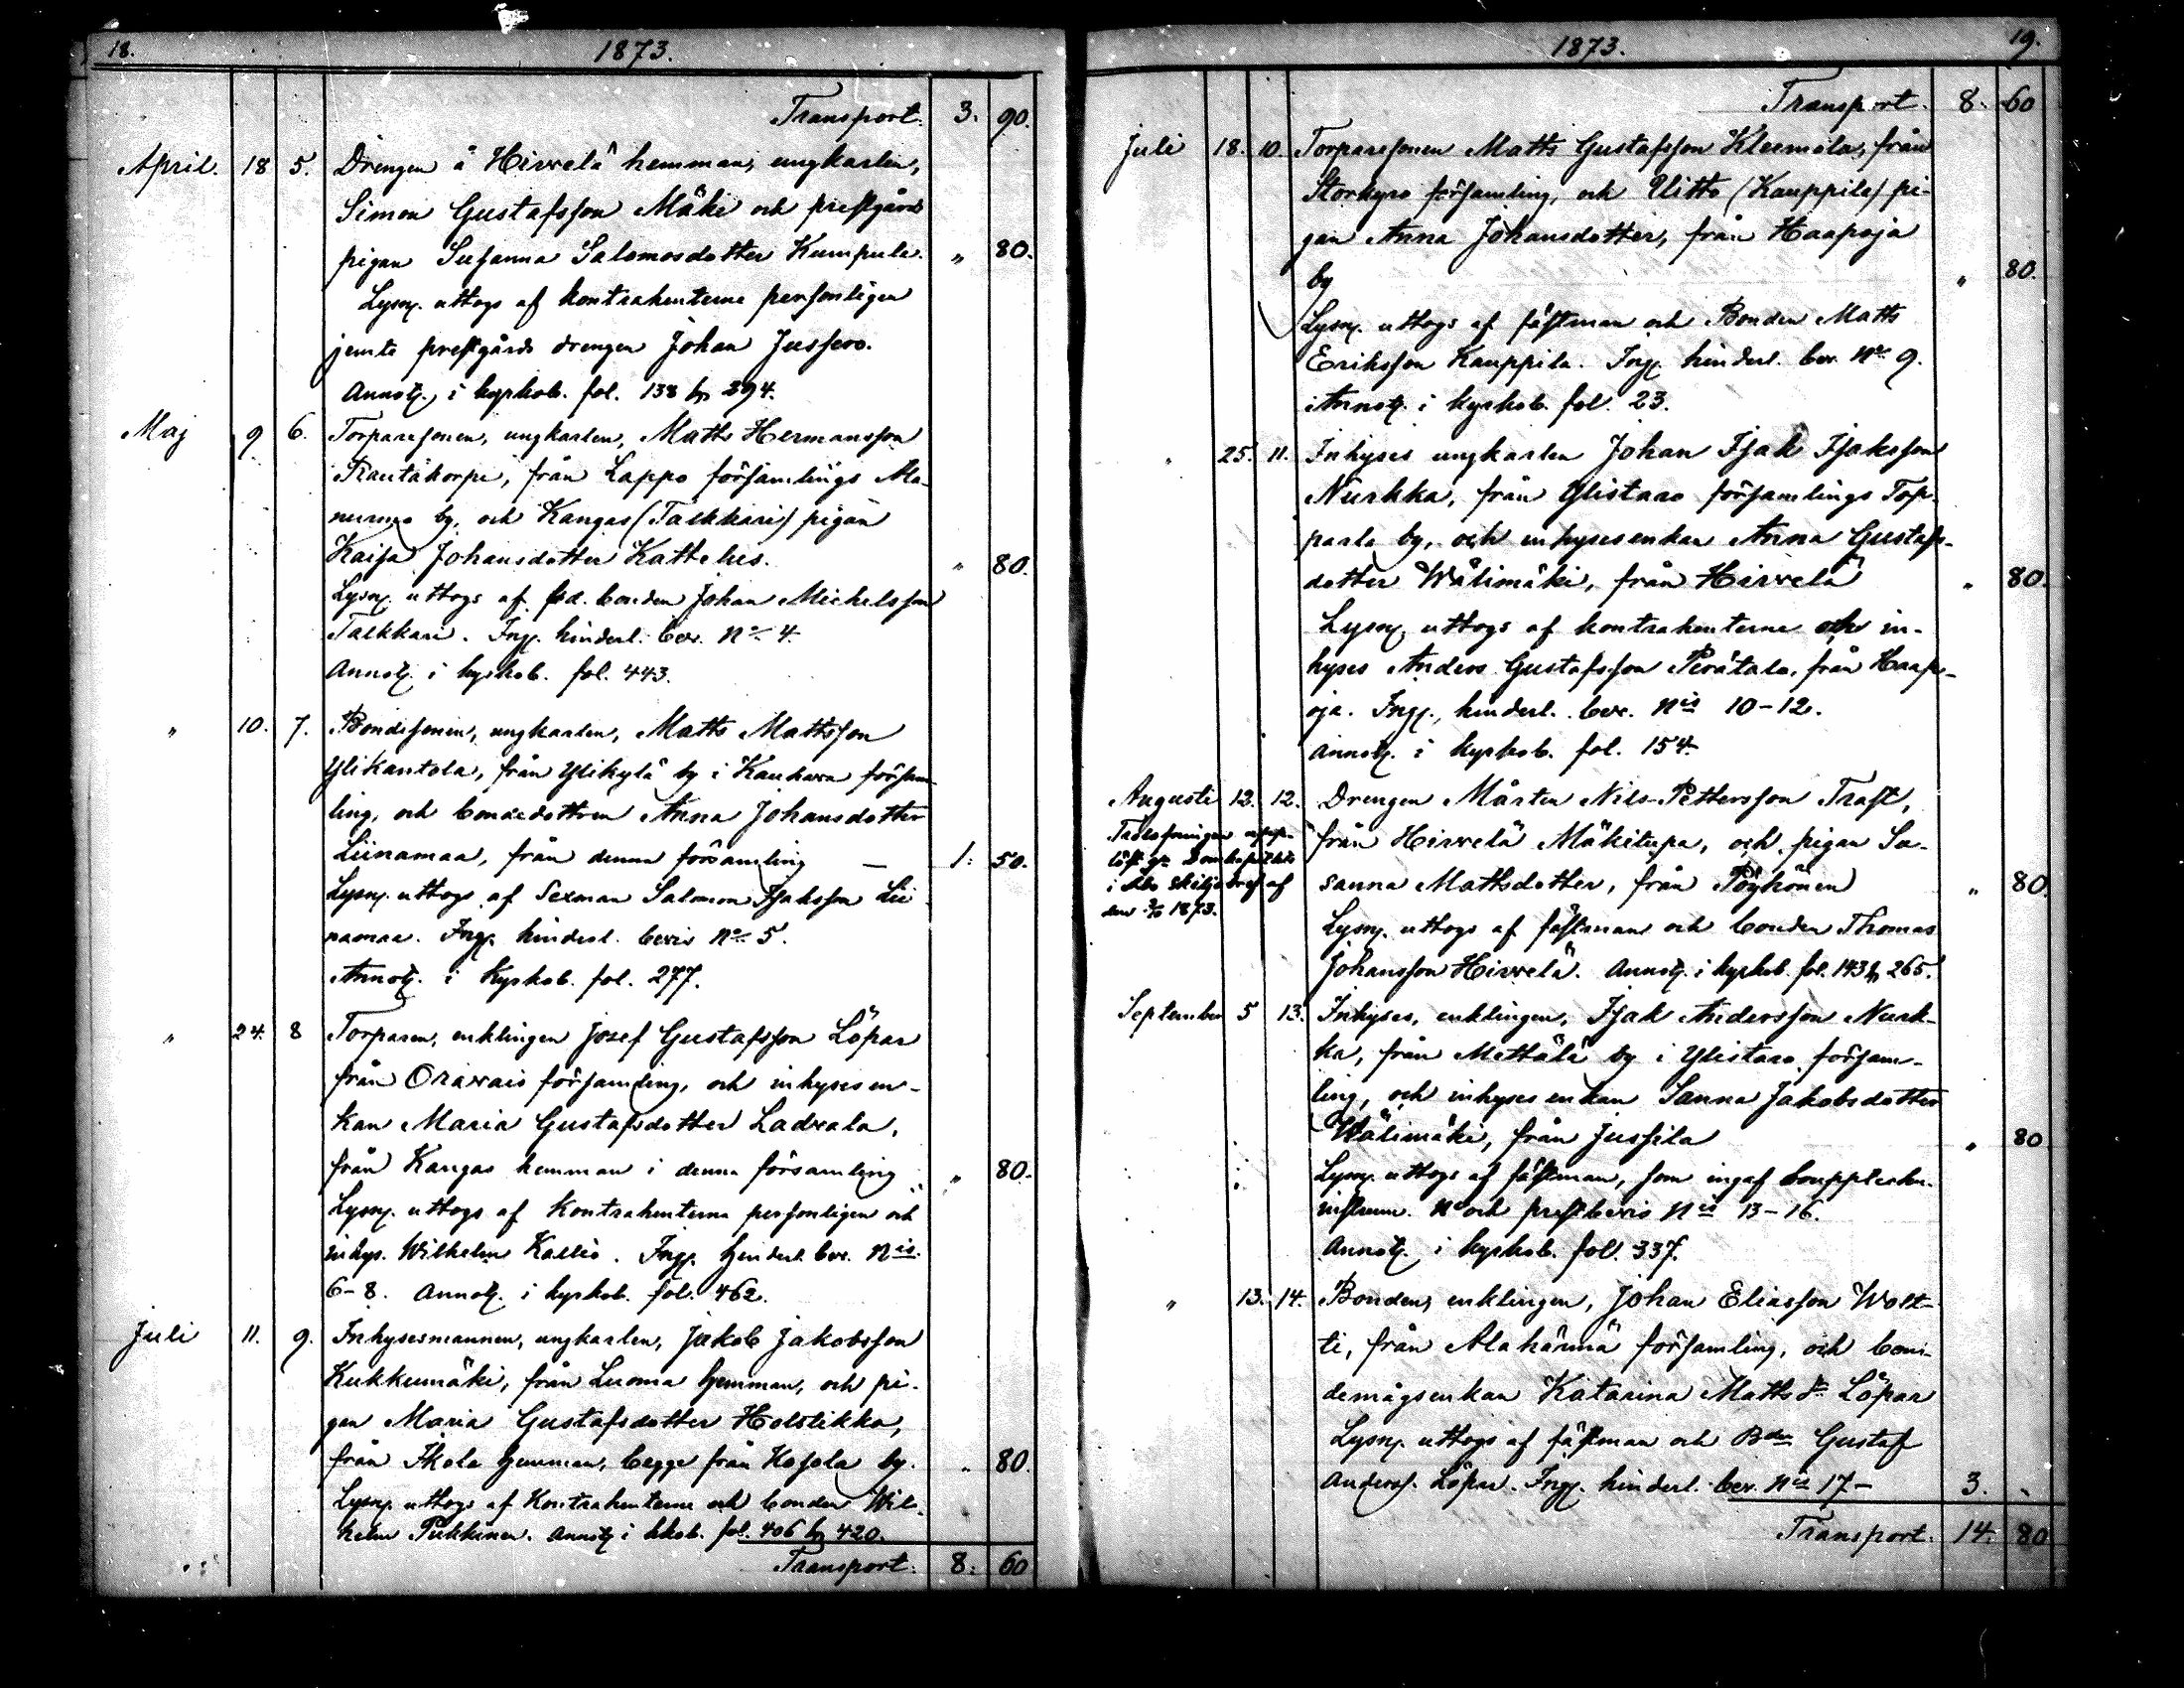 18. 1873.
Transport. 3. 90.
April. 18 5. Drengen å Hirvelä hemman, ungkarlen,
Simon Gustafsson Mäki och prestgårds
pigan Susanna Salomosdotter Kumpula. „ 80.
Lysn. uttogs af kontrahenterne personligen
jemte prestgårds drengen Johan Jussero.
Annot. i kyrkob. fol. 138 & 394.
Maj 9 6. Torparesonen, ungkarlen, Matts Hermansson
Rautakorpi, från Lappo församlings Ala-
nurmo by, och Kangas (Talkkari) pigan
Kaisa Johansdotter Kattelus. „ 80.
Lysn. uttogs af bonden Johan Michelsson
Talkkari. Ing. hinderl. bev. No 4.
Annot. i kyrkob. fol. 443.
„ 10. 7. Bondesonen, ungkarlen, Matts Mattsson
Ylikantola, från Ylikylä by i Kauhava försam-
ling, och bondedottren Anna Johansdotter
Liinamaa, från denna församling — 1: 50.
Lysn. uttogs af Sexman Salomon Isaksson Lii-
namaa. Ing. hinderl. bevis No 5.
Annot. i Kyrkob. fol. 277.
„ 24. 8 Torparen, enklingen Josef Gustafsson Löpar
från Oravais församling, och inhyses en-
kan Maria Gustafsdotter Ladvala,
från Kangas hemman i denna församling „ 80.
Lysn. uttogs af Kontrahenterna personligen och
inhys. Wilhelm Kallio. Ing. hinderl. bev. Nis
6-8. Annot. i kyrkob. fol. 462.
Juli 11. 9. Inhysesmannen, ungkarlen, Jakob Jakobsson
Kukkumäki, från Luoma hemman, och pi-
gan Maria Gustafsdotter Holstikko,
från Ikola hemman, begge från Kosola by. „ 80.
Lysn. uttogs af Kontrahenterne och bonden Wil-
helm Pukkinen. Annot. i kkob. fol. 406 & 420.
Transport. 8: 60
1873. 19.
Transport. 8. 60
Juli 18. 10. Torparesonen Matts Gustafsson Kleemola, från
Storkyro församling, och Uitto (Kauppila) pi-
gan Anna Johansdotter, från Haapoja
by „ 80.
Lysn. uttogs af fästman och Bonden Matts
Eriksson Kauppila. Ing. hinderl. bev. No 9.
Annot. i kyrkob. fol. 23.
„ 25. 11. Inhyses ungkarlen Johan Isak Isaksson
Nurkka, från Ylistaro församlings Top-
parla by, och inhysesenkan Anna Gustafs-
dotter Wälimäki, från Hirvelä „ 80.
Lysn. uttogs af kontrahenterne och in-
hyses Anders Gustafsson Perätalo, från Haap-
oja. Ing. hinderl. bev. Nis 10-12.
Annot. i kyrkob. fol. 154.
Augusti 12. 12. Drengen Mårten Nils-Pettersson Trast,
Trolofningen upp-
från Hirvelä Mäkitupa, och pigan Su-
löst gm Domkapitlets
i Åbo skiljobref af
sanna Mattsdotter, från Pöyhönen „ 80.
den 1873.
Lysn. uttogs af fästman och bonden Thomas
Johansson Hirvelä. Annot. i kyrkob. fol. 143 & 265.
September 5 13. Inhyses, enklingen, Isak Andersson Nurk-
ka, från Mettälä by i Ylistaro försam-
ling, och inhyses enkan Sanna Jakobsdotter
Wälimäki, från Jussila „ 80
Lysn. uttogs af fästman, som ingaf bouppteckn.
instrum. No och prestbevis Nis 13-16.
Annot. i kyrkob. fol. 337.
„ 13. 14. Bonden, enklingen, Johan Eliasson Wolt-
ti, från Alahärmä församling, och bon-
demågsenkan Katarina Matts dr Löpar
Lysn. uttogs af fästman och Bden Gustaf
Anderss. Löpar. Ing. hinderl. bev. Nis 17— 3. „
Transport. 14. 80